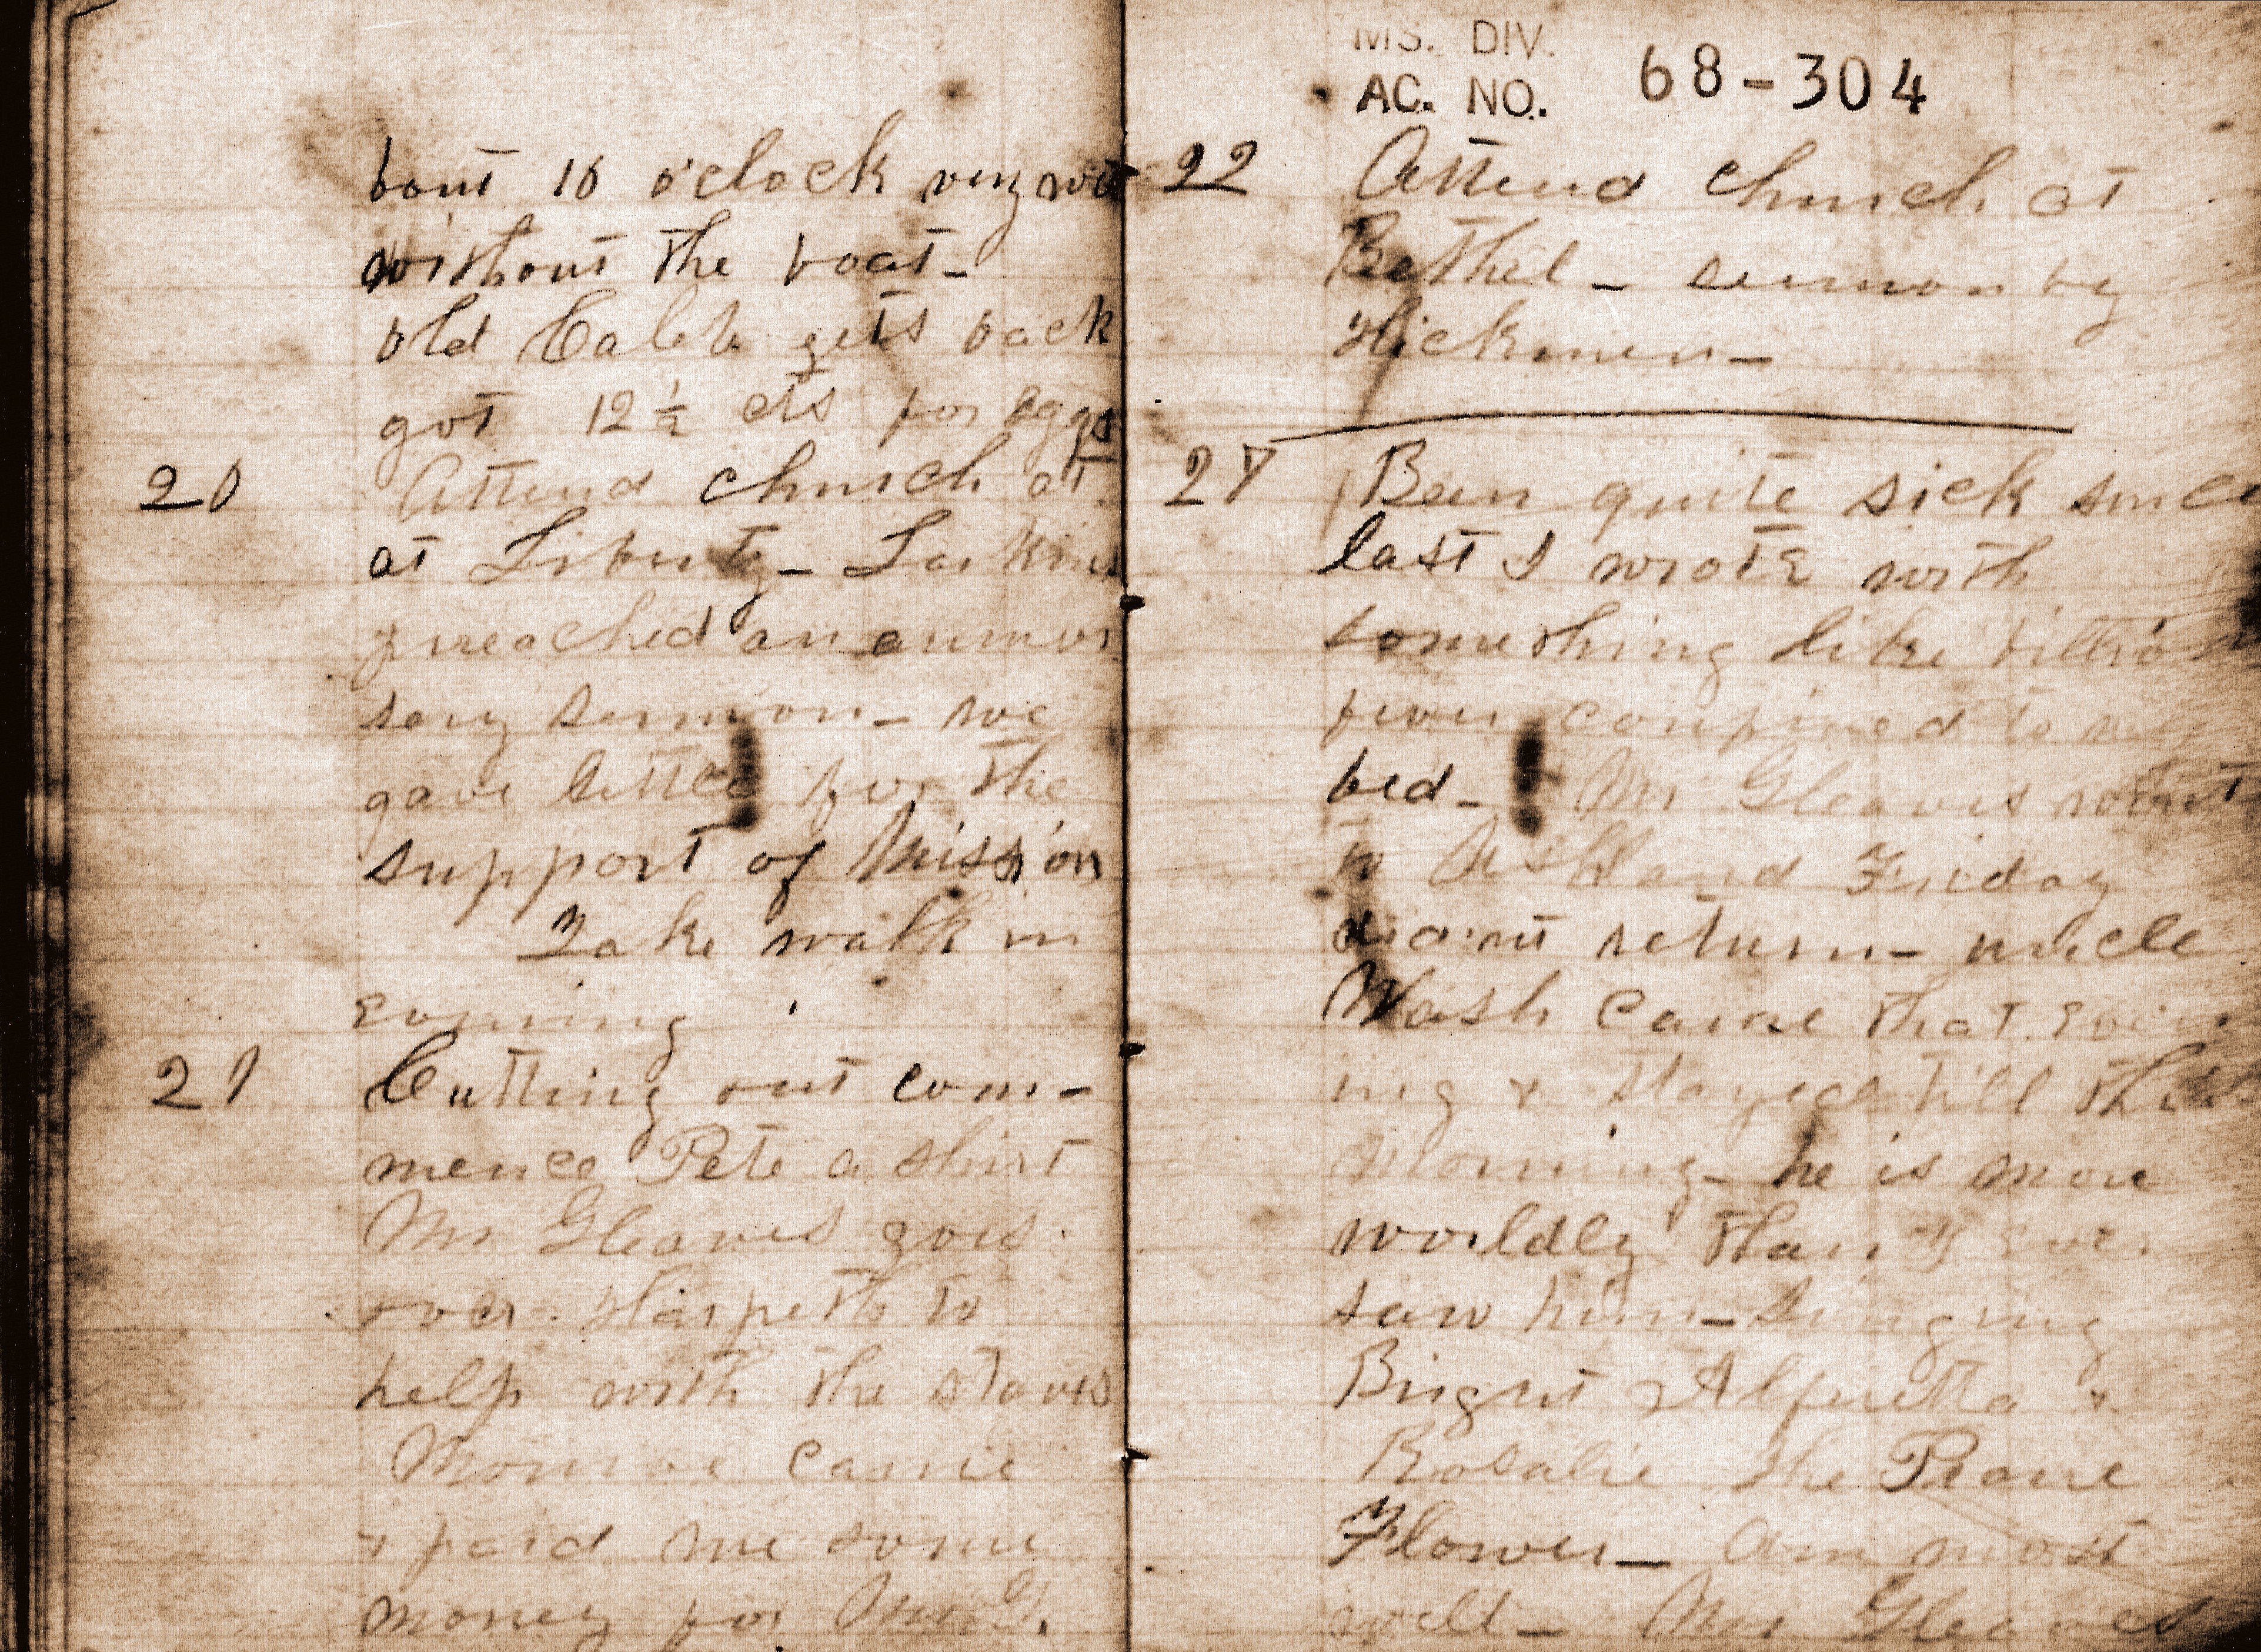 bout 10 o'clock very wet
without the boat-
old Caleb gets back
got 12½ cts for eggs
20 Attend church at
at Liberty- Larkins
preached an anniver
sary sermon- we
gave for the
support of Mission
Take walk in
evening
21 Cutting out com-
mence Pete a shirt
Mr Gleaves goes
over Harpeth to
help with the staves
Monroe came
& paid me some
money for Mr G.
MS. DIV.
AC. NO. 68-304
22 Attend church at
Bethel- sermon by
Hickmen-
27 Been quite sick since
last I wrote with
something like billious
fever confined to my
bed- Mr Gleaves went
to Ashland Friday
didnt return- uncle
Wash came that even
ing & stayed till this
morning- he is more
worldly than I ever
saw him- singing
Bright Alferetta &
Rosalie the Prarie
Flower- Am most
well- Mr Gleaves